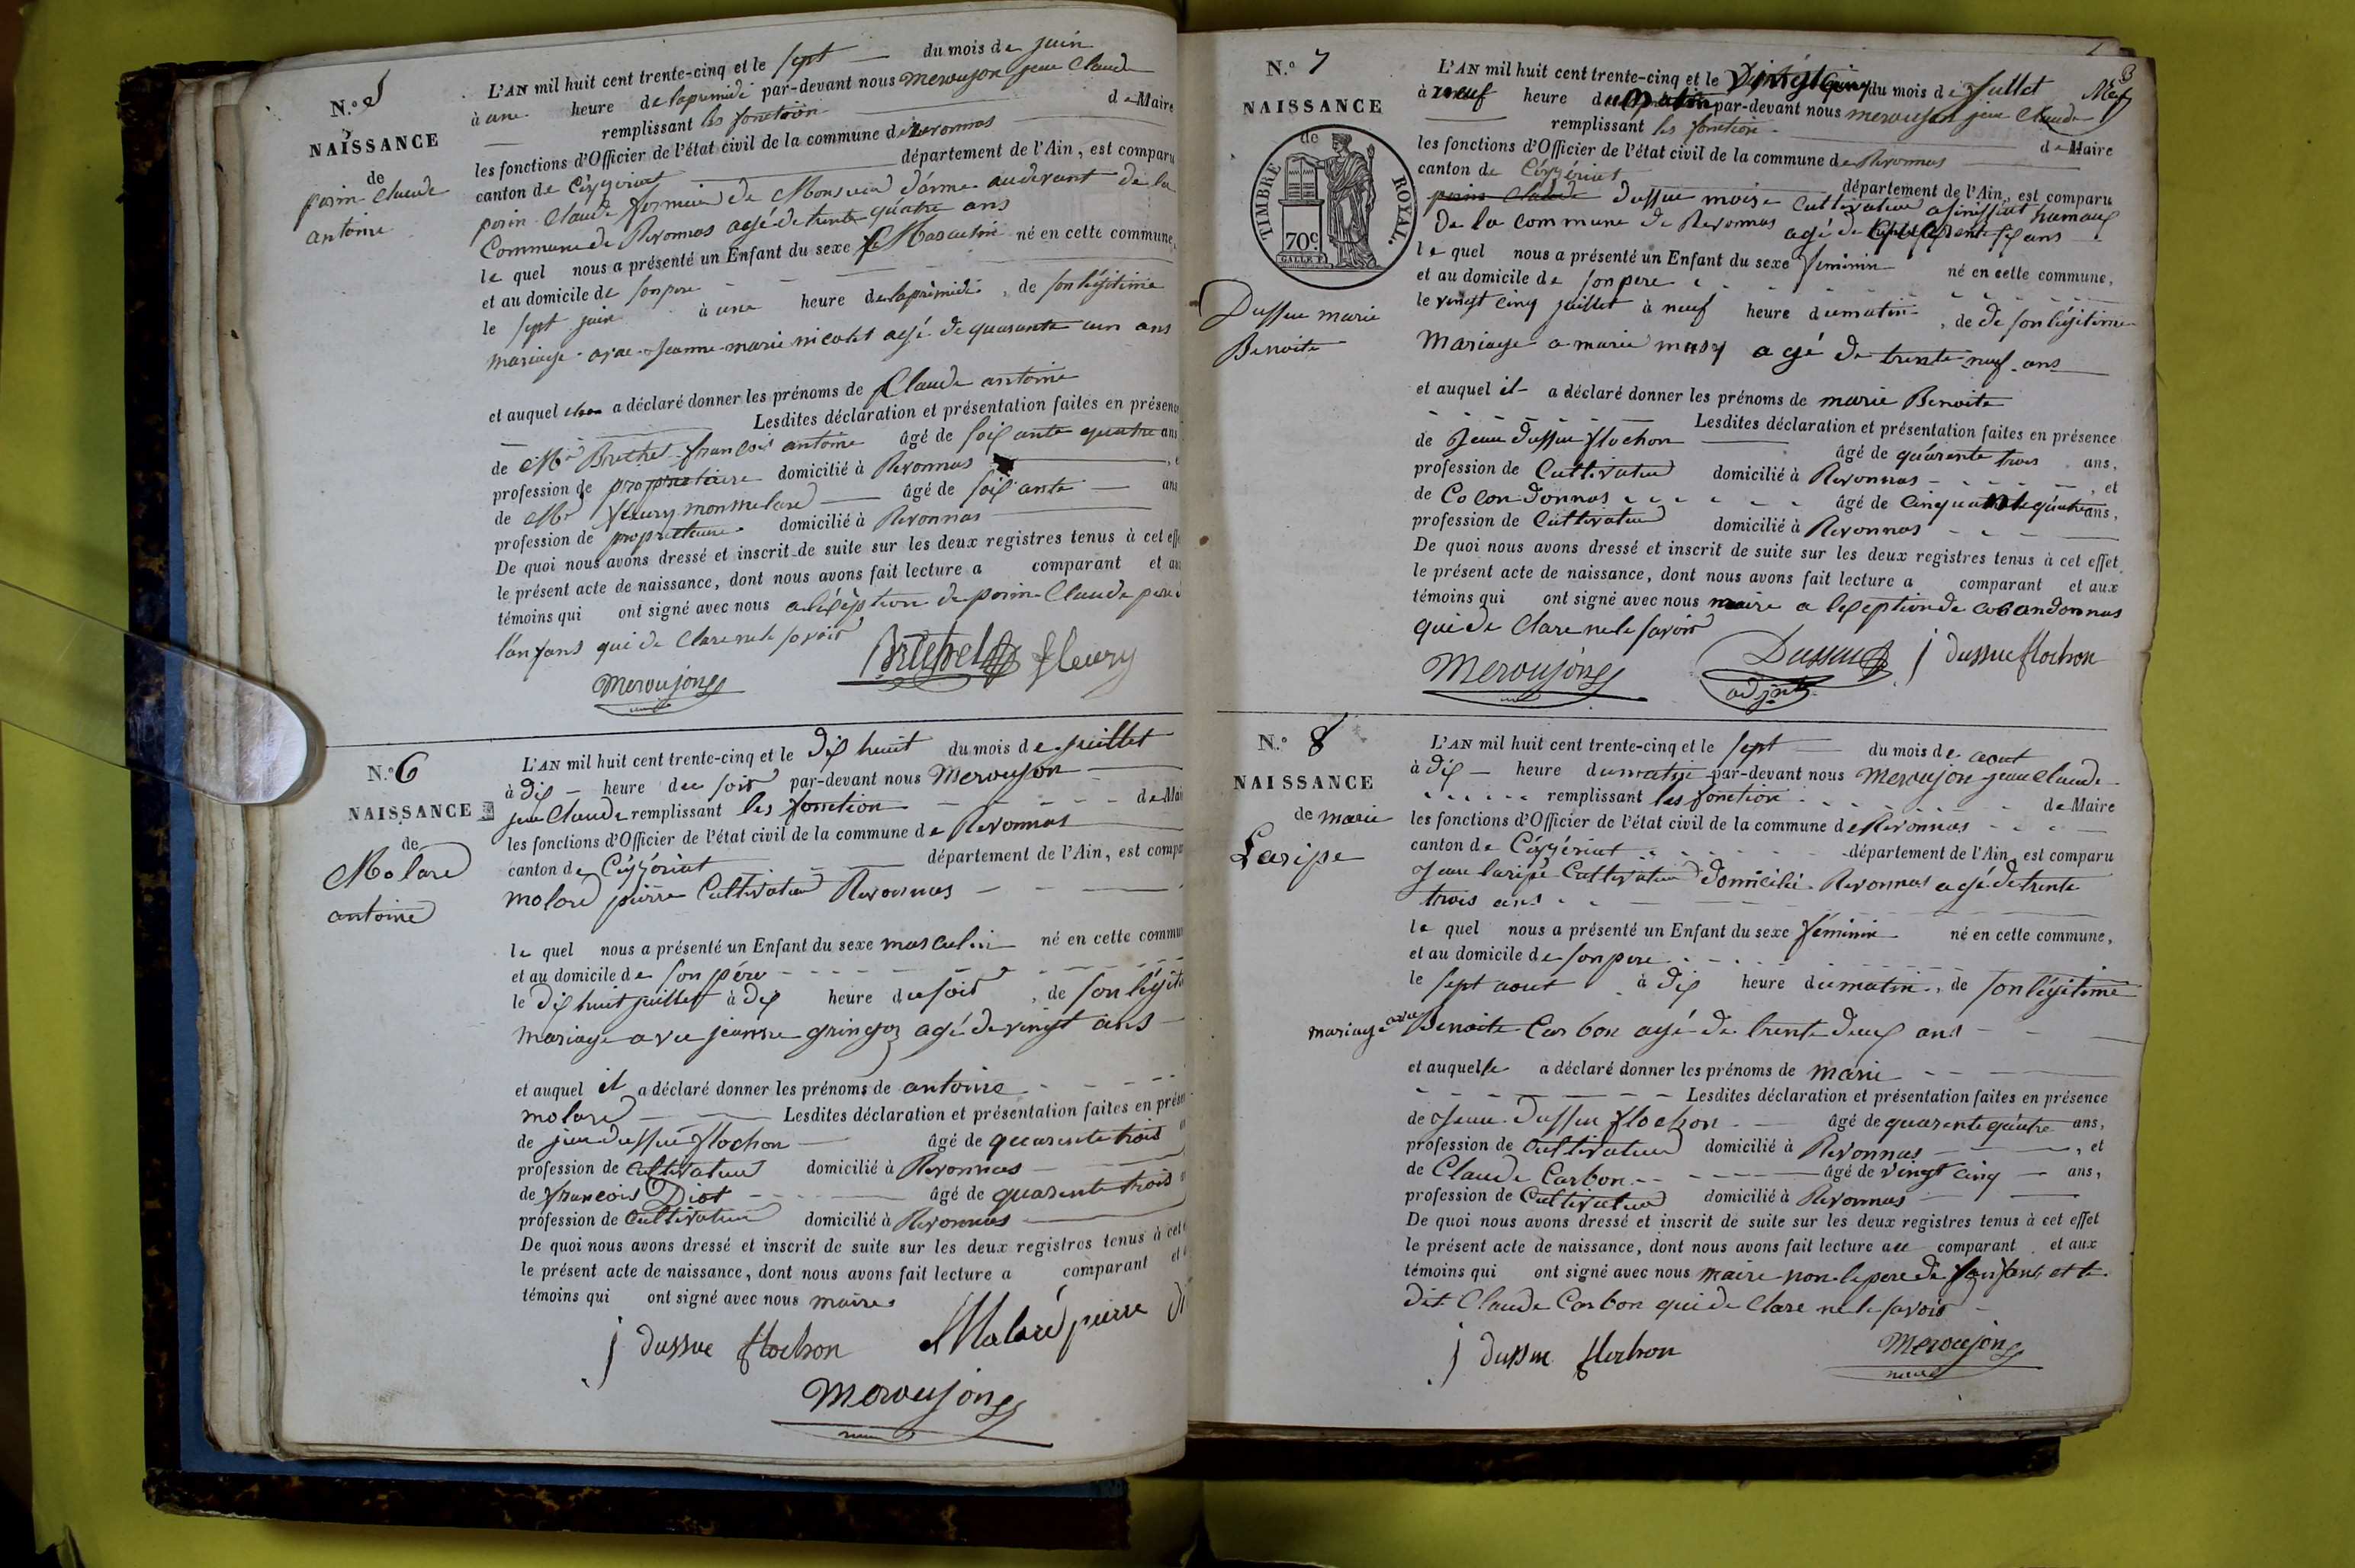 N.° 5
NAISSANCE
de
porin Claude
antoine
L'AN mil huit cent trente-cinq et le sept du mois de juin
à une heure de lapremidi par-devant nous merovjon jean Claude
remplissant les fonction de Maire
les fonctions d'Officier de l'état civil de la commune de revonnas
canton de Céyzériat département de l'Ain, est comparu
porin Claude fermier de Monsieur darme audevant de la
Commune de Revonnas agé de trente quatre ans
le quel nous a présenté un Enfant du sexe Masculin né en cette commune,
et au domicile de son pere
le sept juin à une heure de lapremidi, de son légitime
mariage avac Jeanne marie nicolet agé de quarante un ans
et auquel a déclaré donner les prénoms de Claude antoine
Lesdites déclaration et présentation faites en présence
de Mr Brethel francois antoine âgé de soix ante quatre ans
profession de propriétaire domicilié à Revonnas
de Mr fleury monmelard âgé de soix ante ans
profession de propriettaire domicilié à Revonnas
De quoi nous avons dressé et inscrit de suite sur les deux registres tenus à cet eff
le présent acte de naissance, dont nous avons fait lecture a comparant et au
témoins qui ont signé avec nous a léxéption de porin Claude pere
lanfans qui de Clare ne le savoir
Brethel fleury
merovjon
N.° 6
NAISSANCE
de
Molard
antoine
L'AN mil huit cent trente-cinq et le dix huit du mois de juillet
à dix heure du soir par-devant nous Merovjon
jean Claude remplissant les fonction de Mai
les fonctions d'Officier de l'état civil de la commune de Revonnas
canton de Céyzériat département de l'Ain, est compa
molard pierre Cultivateur Revonnas
le quel nous a présenté un Enfant du sexe masculin né en cette commu
et au domicile de son pére
le dix huit juillet à dix heure du soir, de son légiti
mariage avec jeanne gringoz agé de vingt ans
et auquel il a déclaré donner les prénoms de antoine
molard Lesdites déclaration et présentation faites en prése
de jean dussue flochon âgé de quarente trois
profession de cultivateur domicilié à Revonnas
de francois Diot âgé de quarente trois
profession de Cultivateur domicilié à Revonnas
De quoi nous avons dressé et inscrit de suite sur les deux registres tenus à cet
le présent acte de naissance, dont nous avons fait lecture a comparant et
témoins qui ont signé avec nous maire
j dussue flochon Molard pierre Di
merovjon
N.° 7
NAISSANCE
de
TIMBRE ROYAL.
70c
Dussue marie
Benoite
L'AN mil huit cent trente-cinq et le Vingt cinq du mois de Jullet
à neuf heure du matin par-devant nous merovjon jean Claude
remplissant les fonction de Maire
les fonctions d'Officier de l'état civil de la commune de Revonnas
canton de Céyzériat département de l'Ain, est comparu
dussue moise Cultivateur
De la commune de Revonnas agé de ans
le quel nous a présenté un Enfant du sexe feminin né en cette commune,
et au domicile de son pere
le vingt cinq juillet à neuf heure du matin, de de son légitime
Mariage a marie masy agé de trente neuf ans
et auquel il a déclaré donner les prénoms de marie Benoite
Lesdites déclaration et présentation faites en présence
de Jean dussue flochon âgé de quarente trois ans,
profession de Cultivateur domicilié à Revonnas, et
de Colon donnas âgé de cinquante quatre ans,
profession de Cultivateur domicilié à Revonnas
De quoi nous avons dressé et inscrit de suite sur les deux registres tenus à cet effet
le présent acte de naissance, dont nous avons fait lecture a comparant et aux
témoins qui ont signé avec nous maire a lexeption de
qui de Clare ne le savoir
merovjon Dussue j dussue flochon
adjnt
N.° 8
NAISSANCE
de marie
Laripe
L'AN mil huit cent trente-cinq et le sept du mois de aout
à dix heure du matin par-devant nous merovjon jean Claude
remplissant les fonction de Maire
les fonctions d'Officier de l'état civil de la commune de Revonnas
canton de Céyzériat département de l'Ain, est comparu
Jean laripe Cultivateur domicilié Revonnas agé de trente
trois ans
le quel nous a présenté un Enfant du sexe féminin né en cette commune,
et au domicile de son pere
le sept aout à dix heure du matin, de son légitime
mariage avec Benoite Carbon agé de trente deux ans
et auquelle a déclaré donner les prénoms de marie
Lesdites déclaration et présentation faites en présence
de Jean dussue flochon âgé de quarente quatre ans,
profession de cultivateur domicilié à Revonnas, et
de Claude Carbon âgé de vingt cinq ans,
profession de Cultivateur domicilié à Revonnas
De quoi nous avons dressé et inscrit de suite sur les deux registres tenus à cet effet
le présent acte de naissance, dont nous avons fait lecture au comparant et aux
témoins qui ont signé avec nous maire non le pere de lanfant et le
dit Claude Carbon qui de Clare ne le savoir
j dussue flochon merovjon